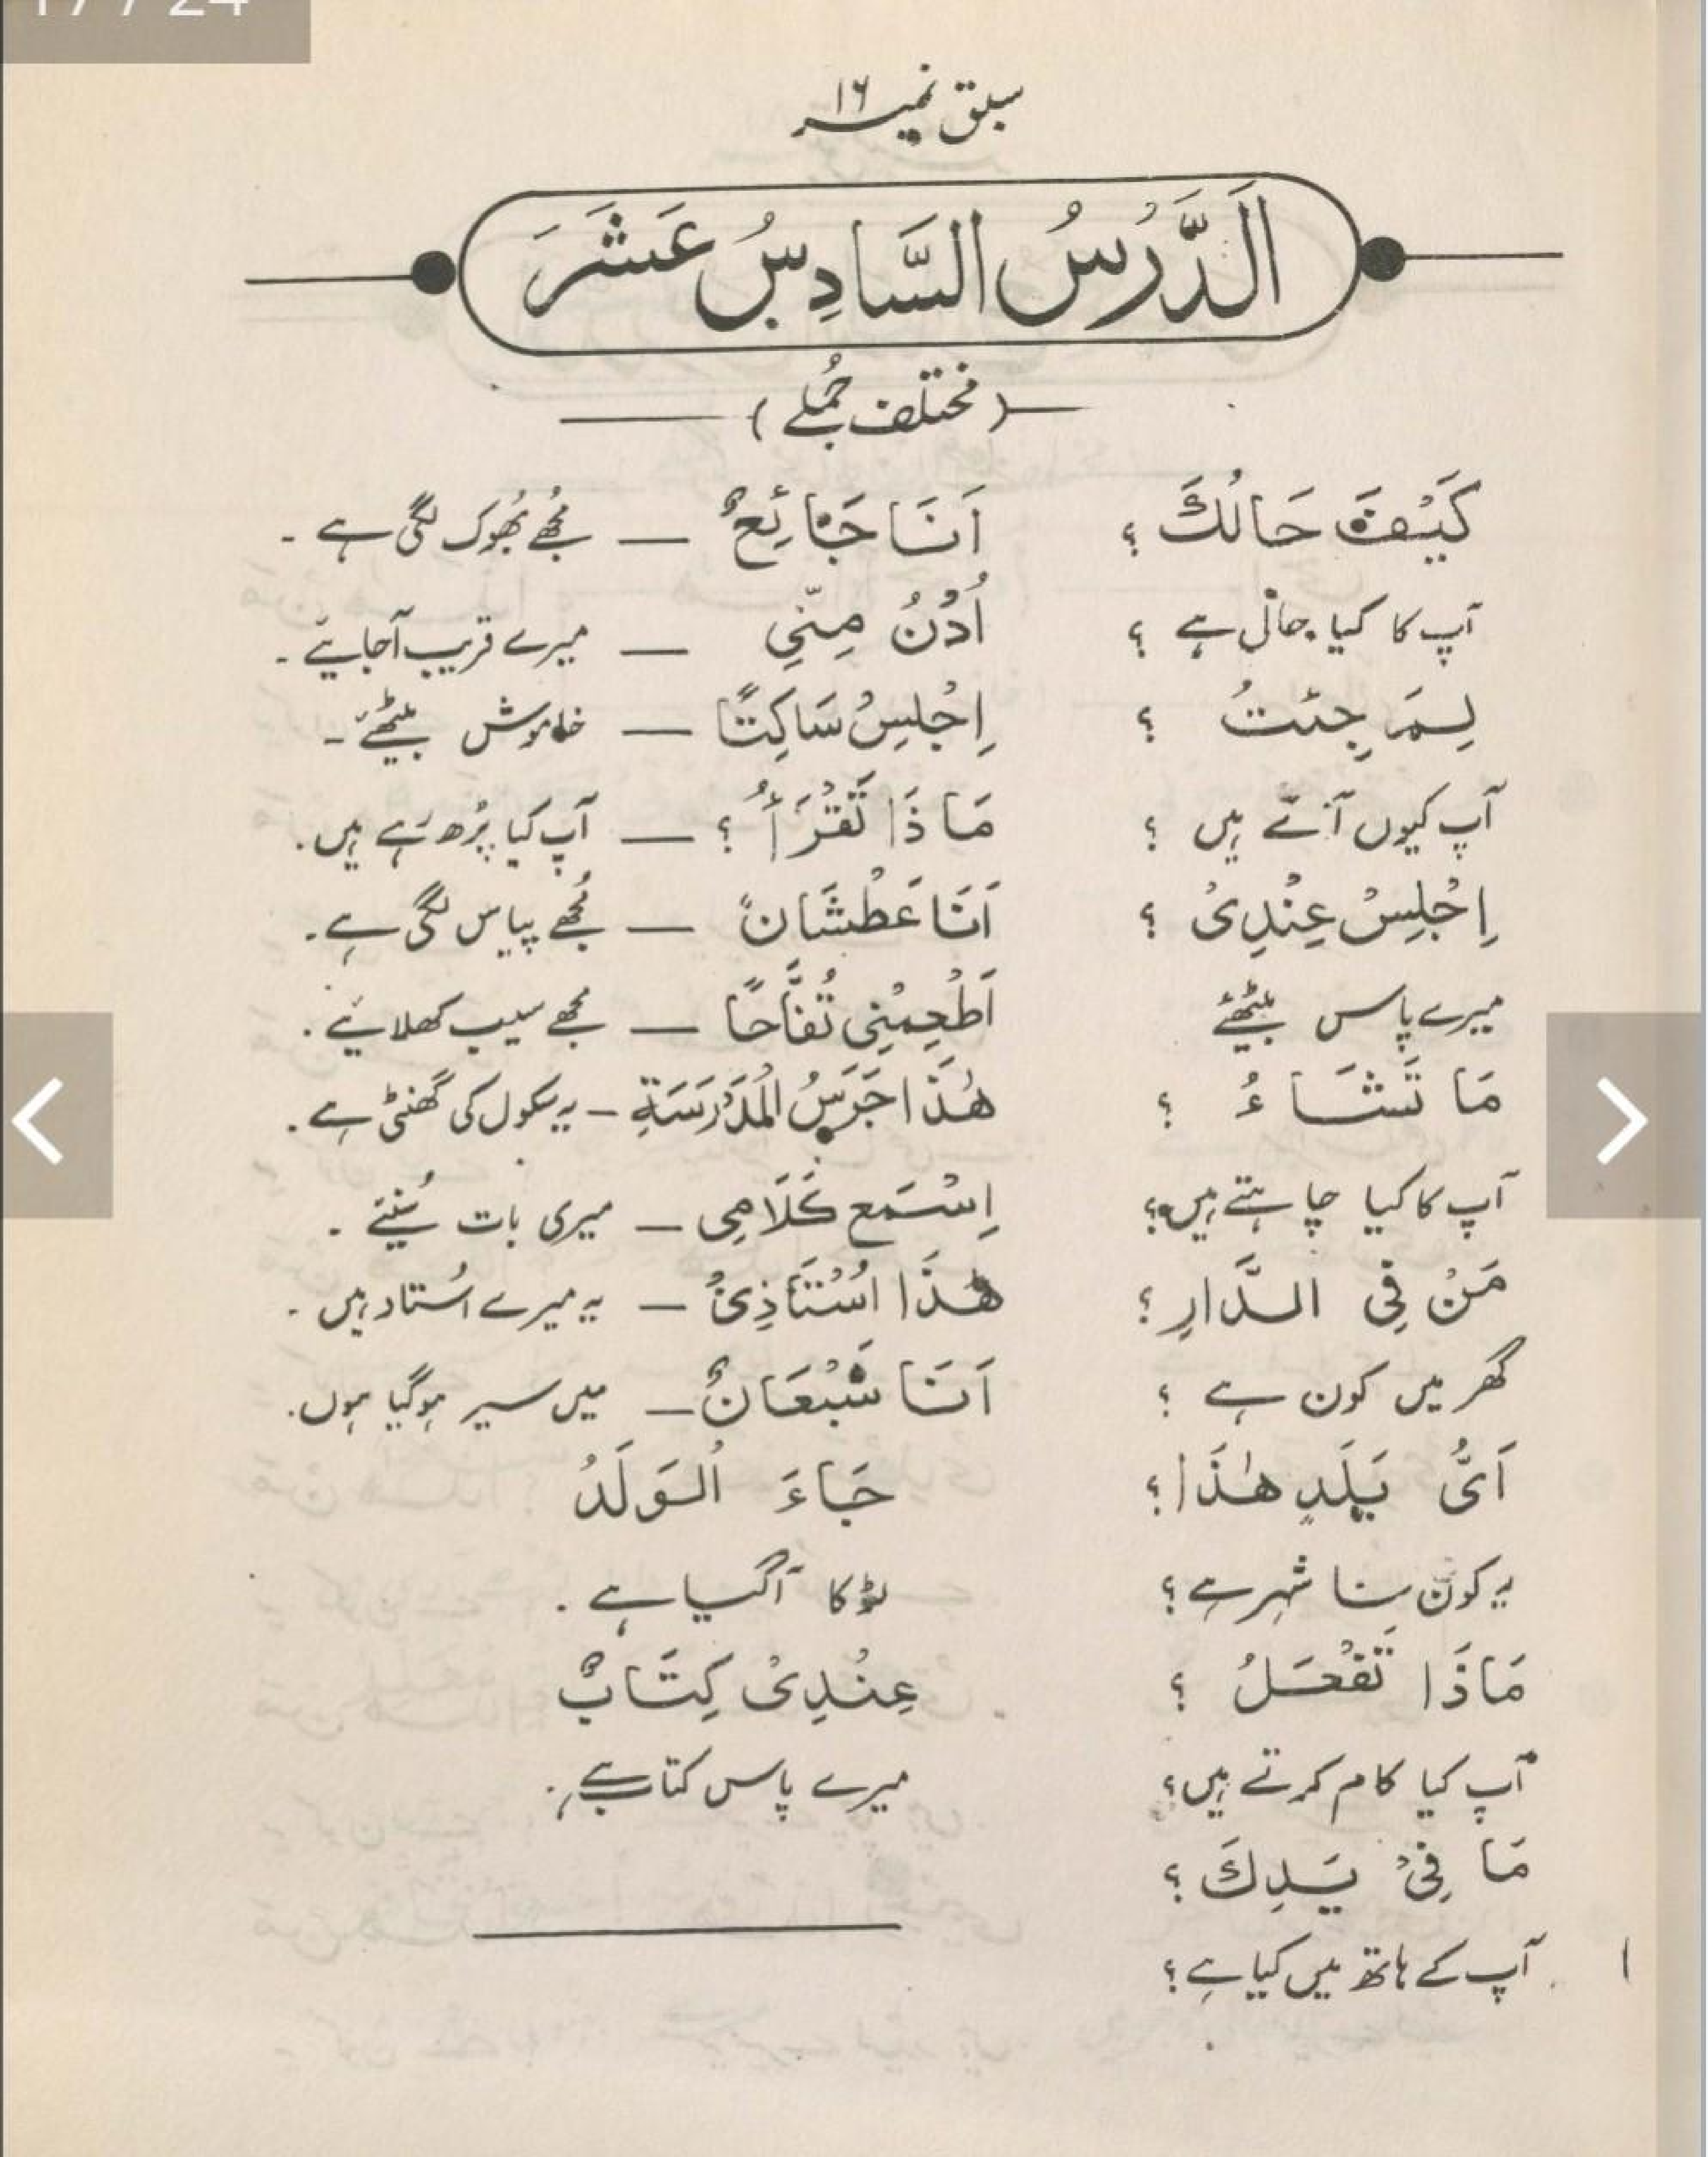 سبق نمبر ۱۶
اَلدَّرْسُ السَّادِسُ عَشَرَ
(مختلف جُملے)
كَيْفَ حَالُكَ ؟
آپ کا کیا حال ہے ؟
لِمَ جِئْتَ ؟
آپ کیوں آئے ہیں ؟
اِجْلِسْ عِنْدِیْ ؟
میرے پاس بیٹھئے
مَا تَشَاءُ ؟
آپ کا کیا چاہتے ہیں؟
مَنْ فِي الدَّارِ ؟
گھر میں کون ہے ؟
اَیُّ بَلَدٍ هٰذَا؟
یہ کون سا شہر ہے ؟
مَاذَا تَفْعَلُ ؟
آپ کیا کام کرتے ہیں؟
مَا فِیْ يَدِكَ ؟
آپ کے ہاتھ میں کیا ہے ؟
اَنَا جَائِعٌ — مجھے بُھوک لگی ہے ۔
اُدْنُ مِنِّي — میرے قریب آجایئے ۔
اِجْلِسْ سَاكِتًا — خاموش بیٹھئے ۔
مَا ذَا تَقْرَأُ ؟ — آپ کیا پڑھ رہے ہیں ۔
اَنَا عَطْشَانُ — مُجھے پیاس لگی ہے ۔
اَطْعِمْنِی تُفَّاحًا — مجھے سیب کھلایئے ۔
هٰذَا جَرَسُ الْمَدْرَسَةِ – یہ سکول کی گھنٹی ہے ۔
اِسْمَع كَلَامِی — میری بات سُنیئے ۔
هٰذَا اُسْتَاذِیْ — یہ میرے اُستاد ہیں ۔
اَنَا شَبْعَانٌ — میں سیر ہوگیا ہوں ۔
جَاءَ الْوَلَدُ
لڑکا آگیا ہے ۔
عِنْدِیْ كِتَابٌ
میرے پاس کتاب ہے ۔